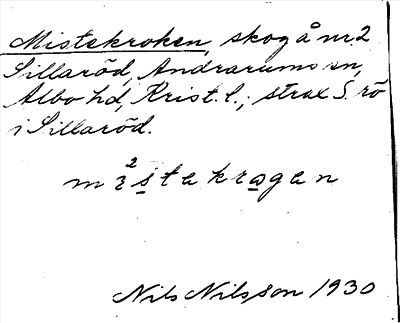 Mistekroken, skog å nr 2
Sillaröd, Andrarums sn,
Albo hd, Krist. l.; strax S.
i Sillaröd.
mistakrogan
Nils Nilsson 1930